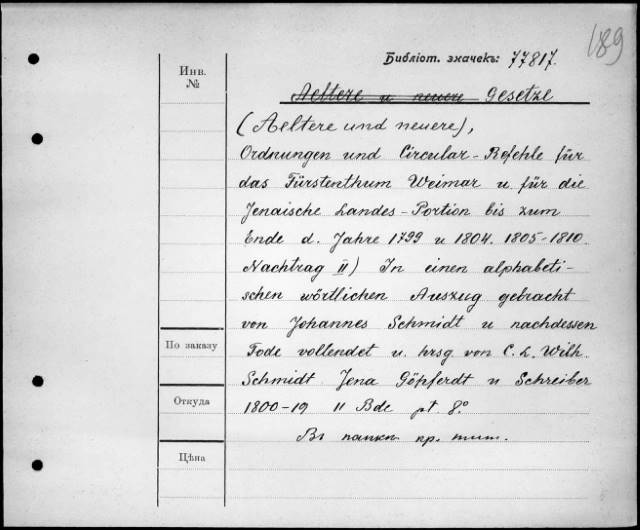 189
Библіот. значекъ: 77817.
Инв.
№
Aeltere u neuere Gesetze
(Aeltere und neuere),
Ordnungen und Circular-Befehle für
das Fürstenthum Weimar u. für die
Jenaische Landes-Portion bis zum
Ende d. Jahre 1799 u 1804. 1805-1810.
Nachtrag II) In einen alphabeti-
schen wörtlichen Auszug gebracht
von Johannes Schmidt u nachdessen
Tode vollendet u. hrsg. von C. L. Wilh.
Schmidt Jena Göpferdt u Schreiber
1800-19 11 Bde pt. 8.º
Въ папкп. пр. тит.
По заказу
Откуда
Цѣна